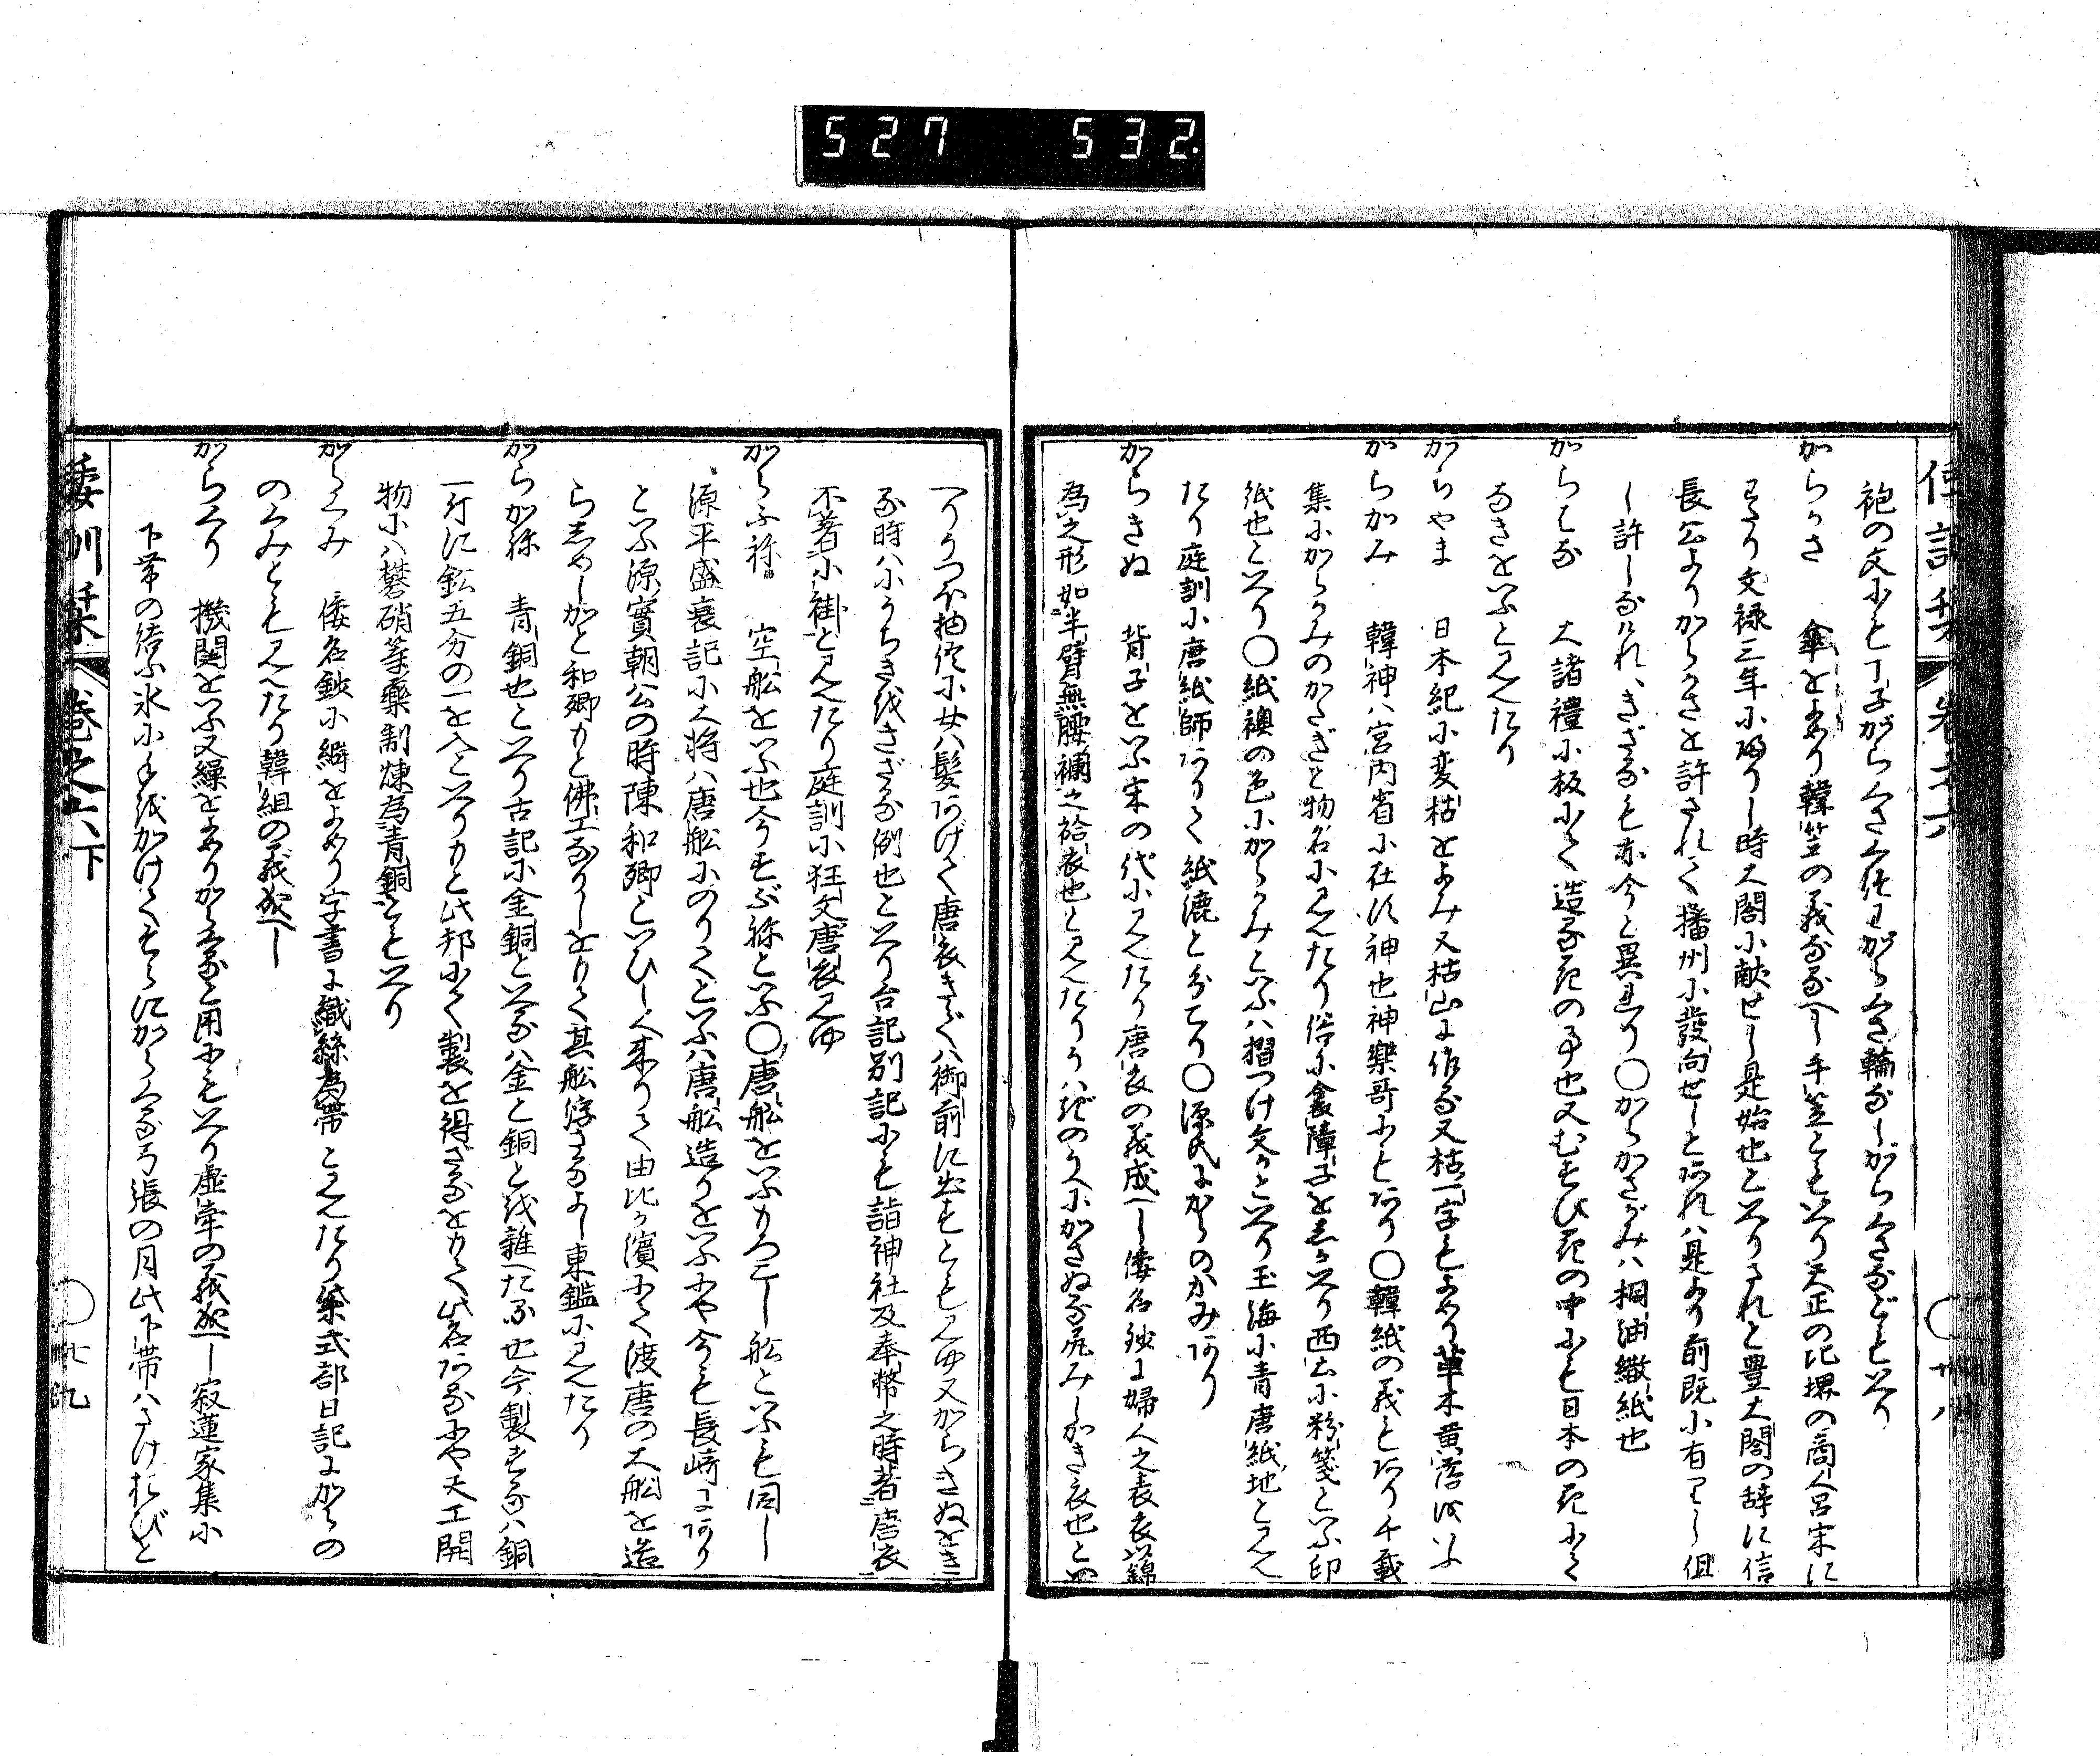 527 532.
倭訓栞 巻之六
廿八
袍の文にも丁子がらくさ大桜がらくさ輪なしがらくさなどもいへり
からかさ 傘をよめり韓笠の義なるへし手笠ともいへり天正の比堺の商人呂宋に
わたり文禄三年に帰りし時大閤に献せし是始也といへりされと豊大閤の辞に信
長公よりからかさを許されて播州に發向せしとあれハ是より前既に有りし但
し許しなけれハきざるも亦今と異なり〇からかさがみハ桐油繖紙也
からはな 大諸禮に板にて造る花の事也又むすび花の中にも日本の花にて
なきをいふと見えたり
からやま 日本紀に変枯をよみ又枯山に作る又枯一字もよめり草木黄落をいふ
からかみ 韓神ハ宮内省に在す神也神樂哥にもあり〇韓紙の義もあり千載
集にからかみのかたぎと物名に見えたり俗に衾障子をしかいへり西土に粉箋といふ印
紙也といへり〇紙襖の色にからかみといふハ摺つけ文かといへり玉海に青唐紙地と見え
たり庭訓に唐紙師ありて紙漉と分てり〇源氏にからのかみあり
からきぬ 背子をいふ宋の代に見えたり唐衣の義成へし倭名鈔に婦人之表衣以錦
為之形如半臂無腰襴之袷衣也と見えたりうハぎのうへにかさぬる尻みしかき衣也とい
へりうつほ抽俊に女ハ髪あげて唐衣きでハ御前に出すとも見ゆ又からきぬをき
る時ハ小うちきをきざる例也といへり台記別記にも詣神社及奉幣之時著唐衣
不著小褂と見えたり庭訓に狂文唐衣見ゆ
からふね 空船をいふ也今うすぶねといふ〇唐船をいふもろこし船といふも同し
源平盛衰記に大将ハ唐船にのりてといふハ唐船造りをいふにや今も長崎にあり
といふ源實朝公の時陳和卿といひし人来りて由比か濱にて渡唐の大船を造
らしめしかと和卿もと佛工なりしをもて其船浮さるよし東鑑に見えたり
からかね 青銅也といへり古記に金銅といへるハ金と銅とを雜へたる也今製するハ銅
一斤に鉛五分の一を入といへりもと此邦にて製を得ざるをもて此名あるにや天工開
物にハ礬硝等藥制煉為青銅ともいへり
からくみ 倭名鈔に緂をよめり字書に織絲為帶と見えたり紫式部日記にからの
のくみとも見へたり韓組の義成へし
からくり 機関をいふ又繰をよめりからくると用にもいへり虚牽の義成へし寂蓮家集に
下帯の結ふ氷に手をかけてもらにからくる弓張の月此下帯ハさけおびと
倭訓栞 巻之六下
廿九